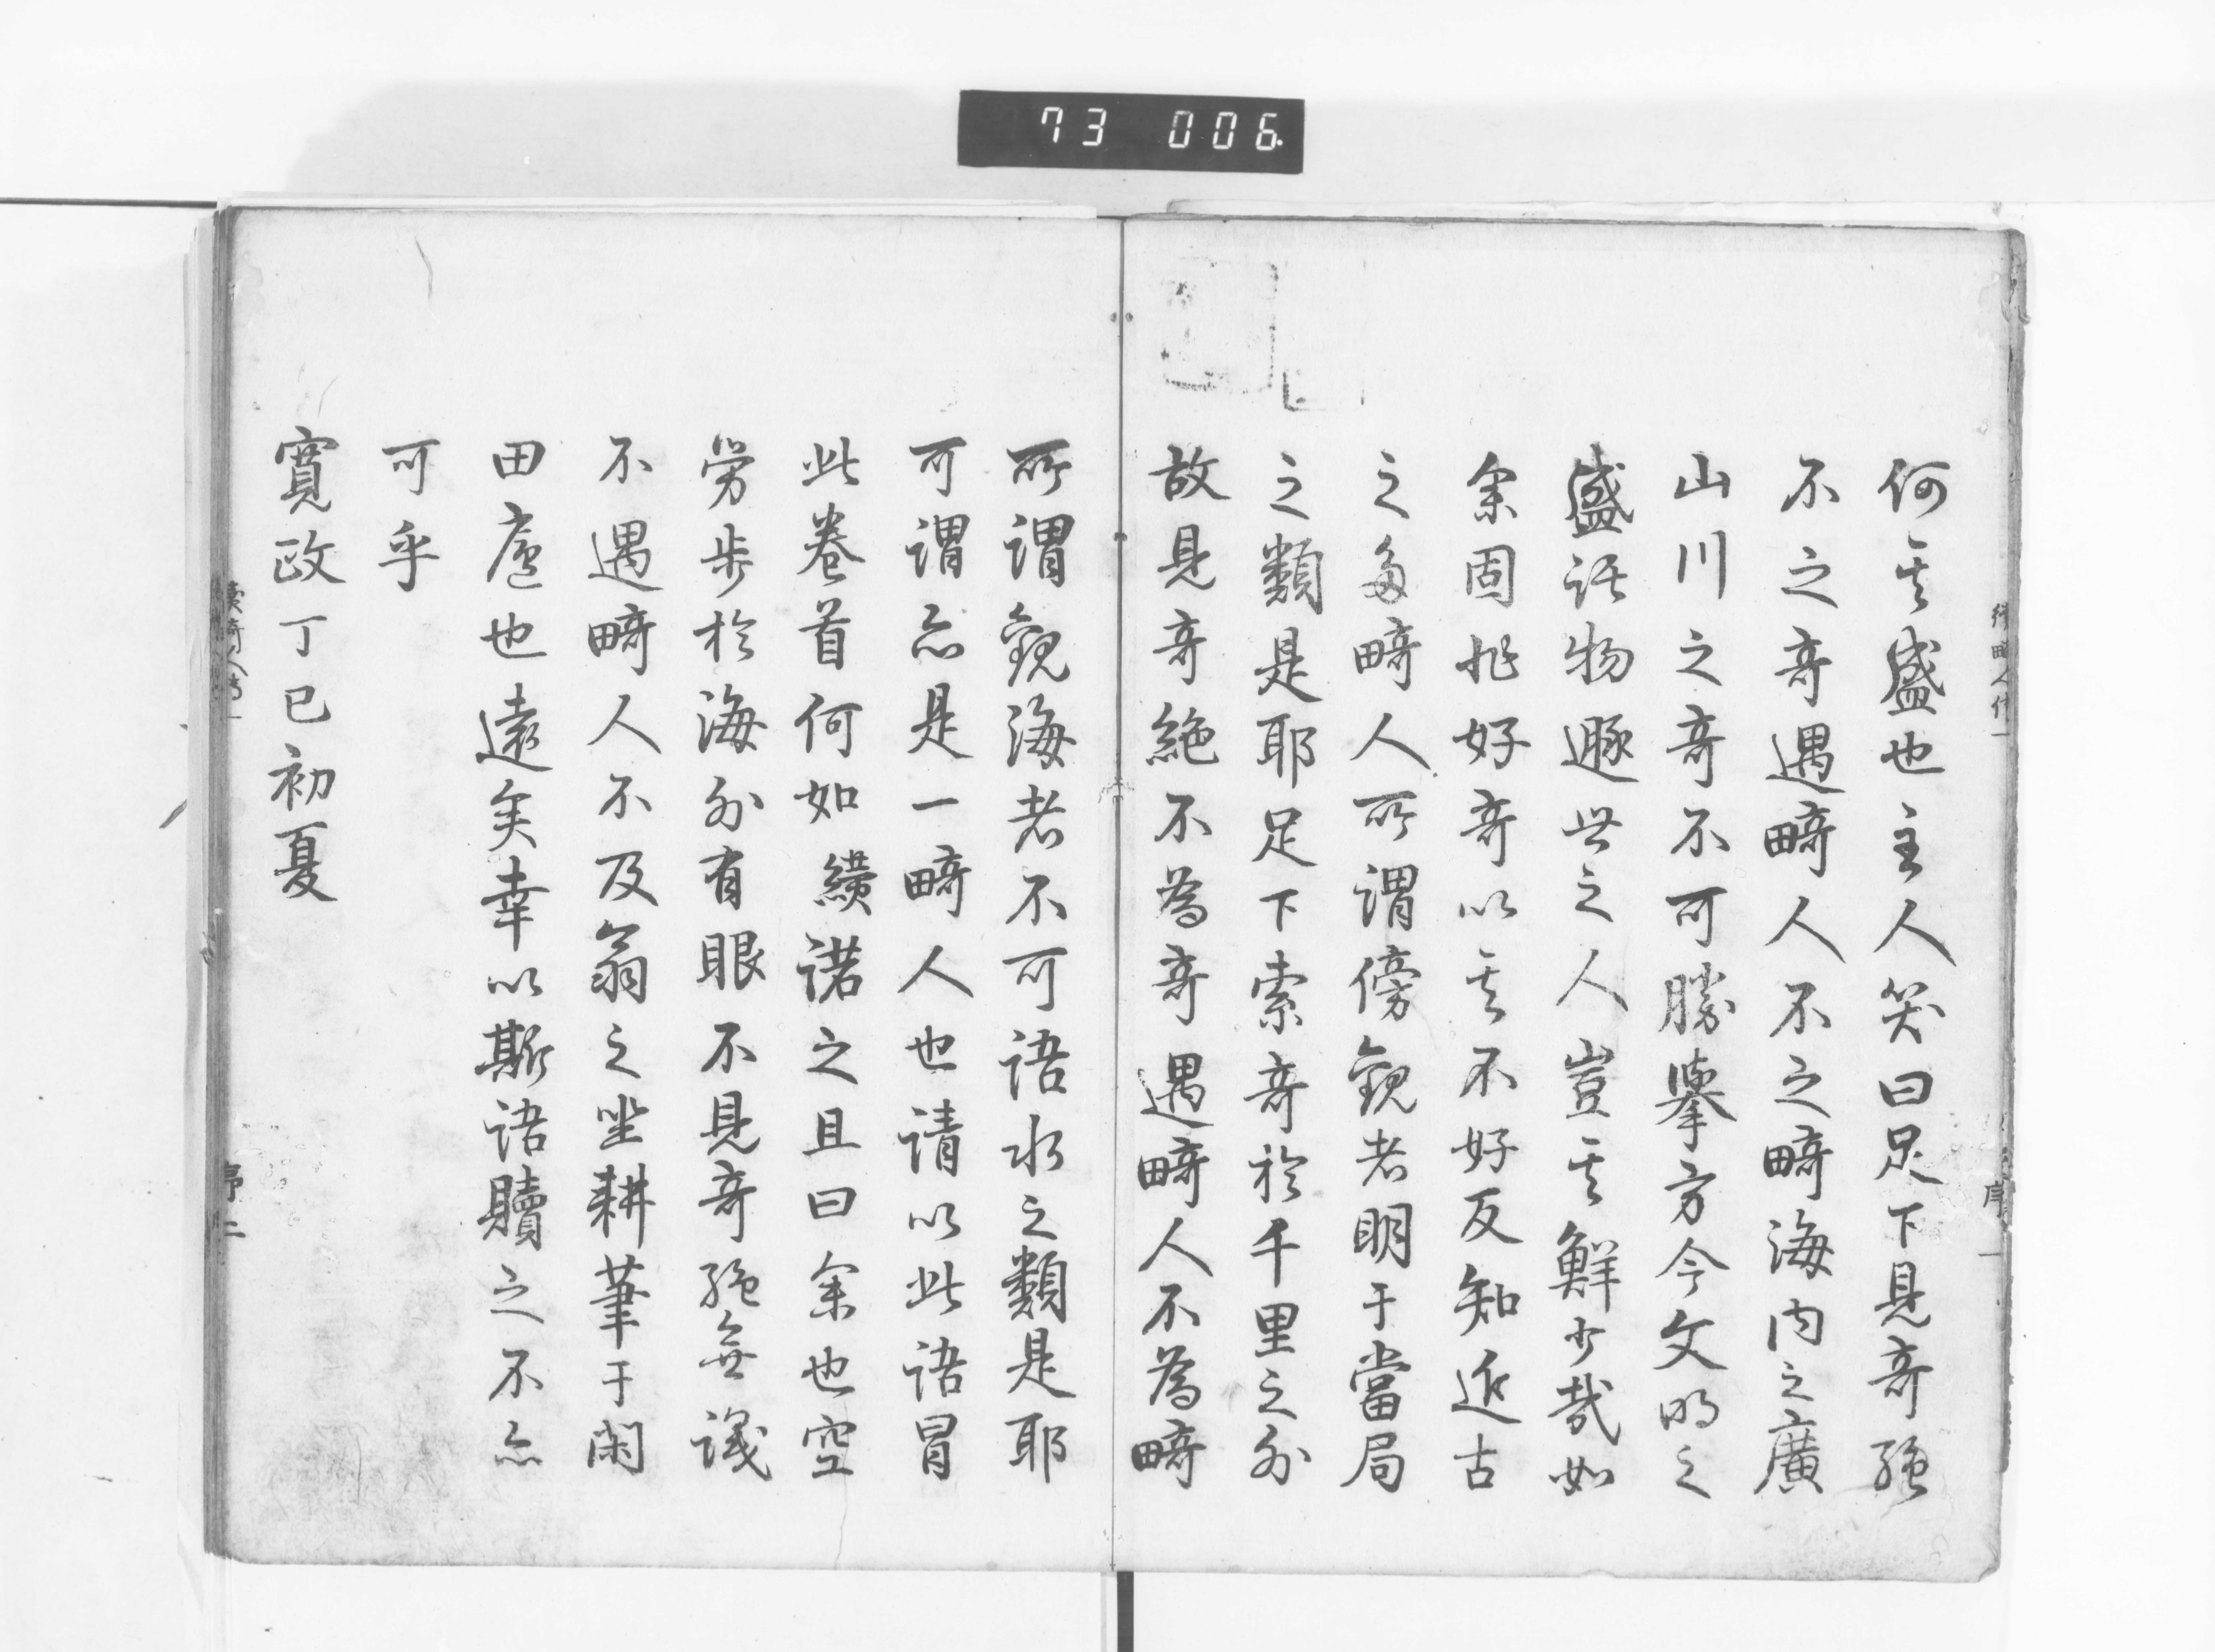 73 006
何其盛也主人笑曰足下見奇絶
不之奇遇畸人不之畸海内之廣
山川之奇不可勝擧方今文明之
盛話物遯世之人豈其鮮少哉如
余固非好奇以其不好反知近古
之多畸人所謂傍觀者明于當局
之類是耶足下索奇於千里之外
故見奇絶不為奇遇畸人不為畸
所謂觀海者不可語水之類是耶
可謂亦是一畸人也請以此語冒
此卷首何如 績諾之且曰余也空
勞歩於海外有眼不見奇絶無識
不遇畸人不及翁之坐耕筆于閑
田廬也遠矣幸以斯語贖之不亦
可乎
寛政丁巳初夏
續畸人傳一
序一
序二